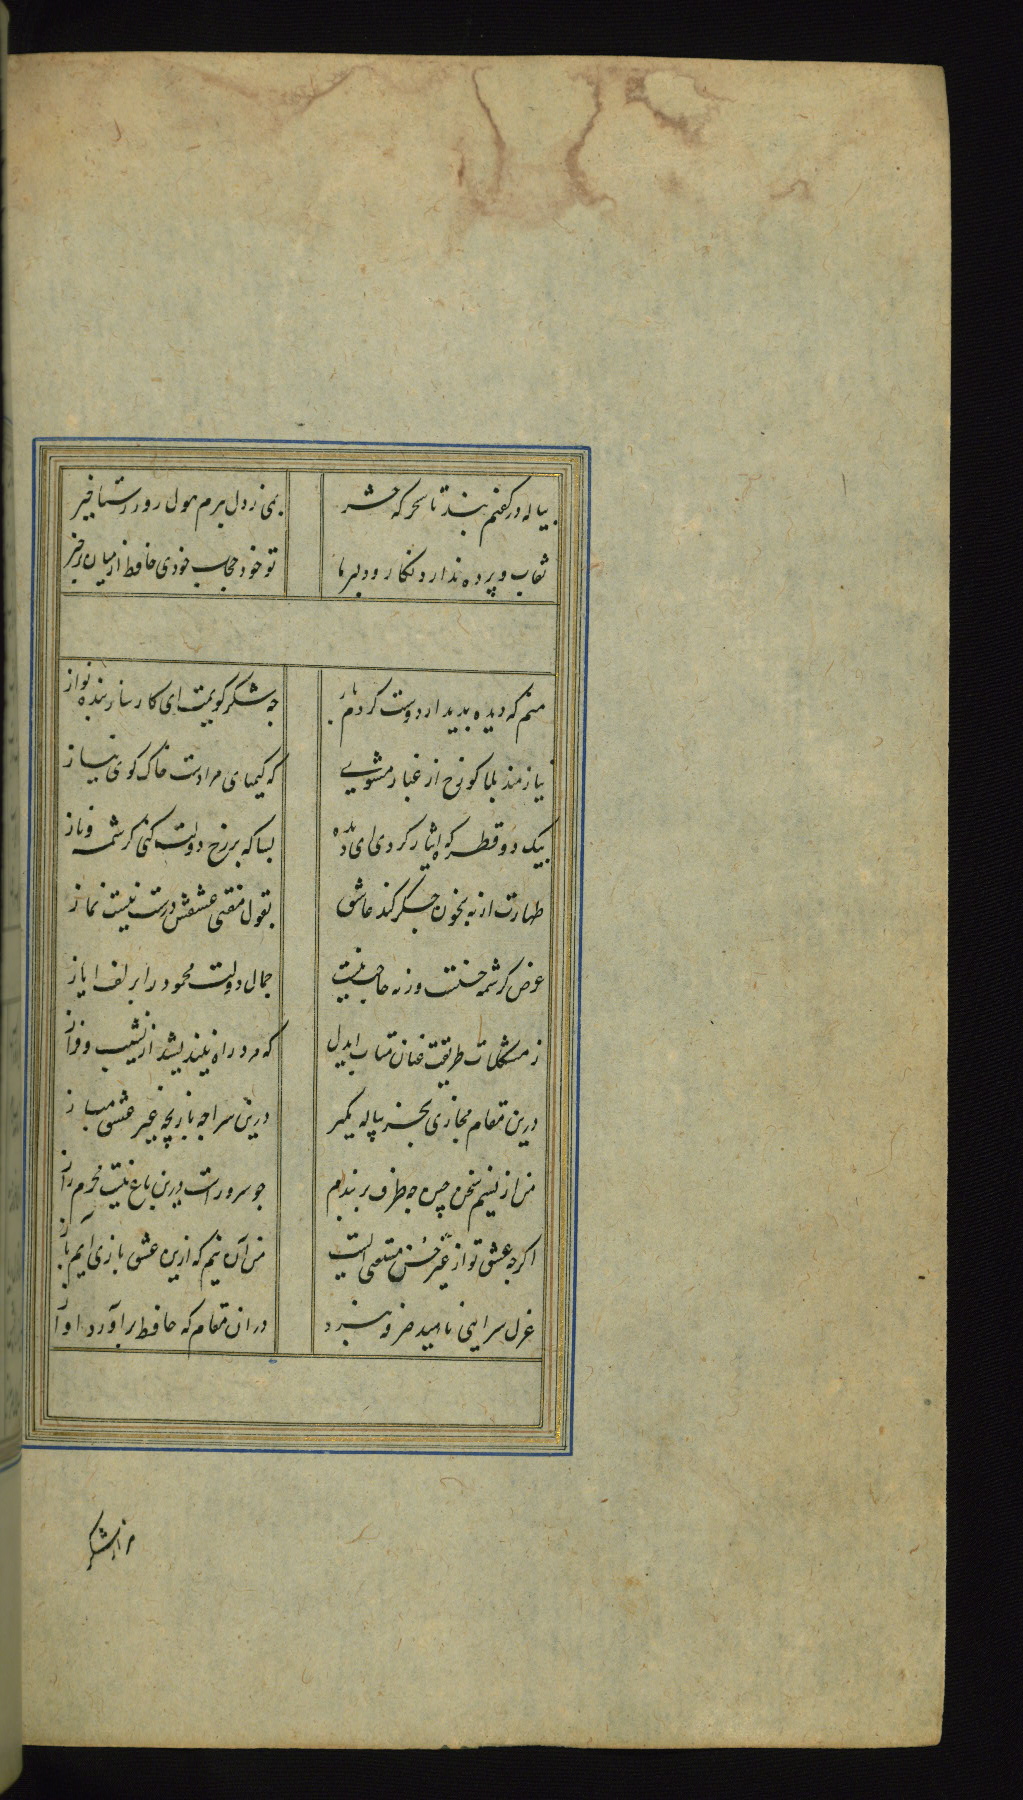 پیاله در کفنم بند تا سحرکه حشر بمی ز دل ببرم هول روز رستاخیز
نقاب و پرده ندارد نکار دلبر ما تو خود حجاب خودی حافظ از میان برخیز
منم که دیده بدیدار دوست کردم باز چه شکر کویمت ای کارساز بنده نواز
نیازمند بلا کو رخ از غبار مشوی که کیمیای مرادست خاک کوی نیاز
بیک دو قطره که ایثار کردی ای دیده بسا که بر رخ دولت کنی کرشمه و ناز
طهارت ار نه بخون جکر کند عاشق بقول مفتی عشقش درست نیست نماز
غرض کرشمه حسنست ورنه حاجت نیست جمال دولت محمود را بزلف ایاز
ز مشکلات طریقت عنان متاب ایدل که مرد راه نیندیشد از نشیب و فراز
درین مقام مجازی بجز پیاله مکیر درین سراچه بازیچه غیر عشق مباز
من از نسیم سخن چین چه طرف بربندم چو سرو راست درین باغ نیست محرم راز
اکرچه عشق تو از غیر حسن مستغنی است من آن نیم که ازین عشق بازی آیم باز
غزل سرایی ناهید صرفه نبرد دران مقام که حافظ برآورد آواز
هزار شکر